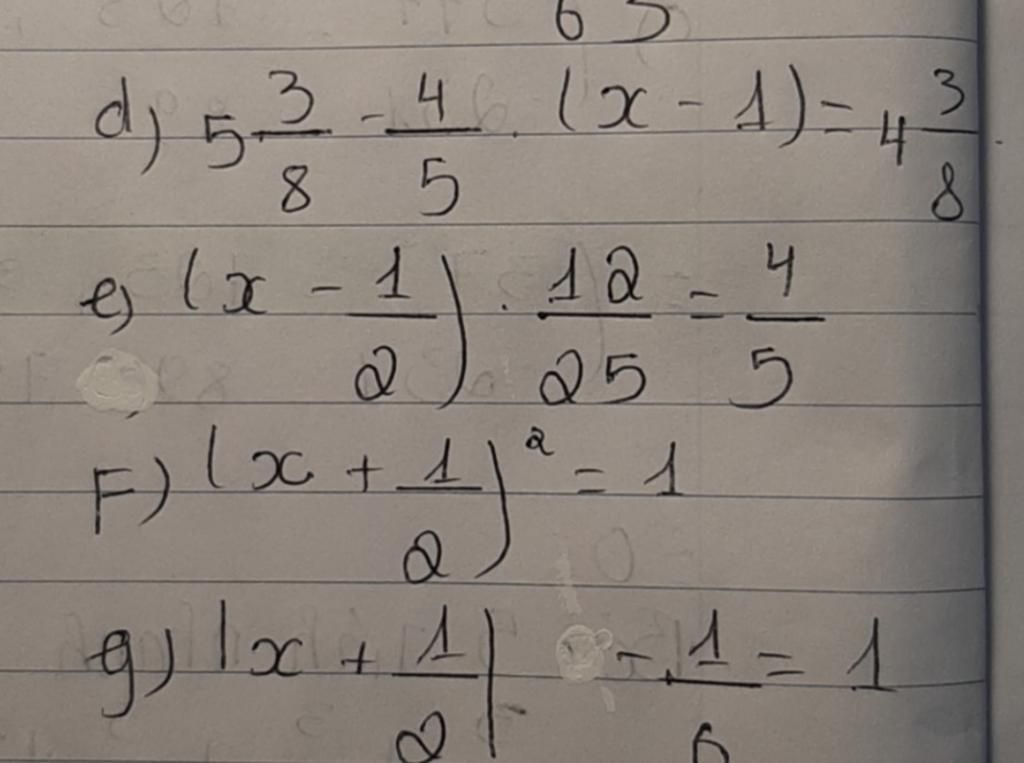 d) 5 3/8 - 4/5 . (x - 1) = 4 3/8
e) (x - 1/2) . 12/25 = 4/5
F) (x + 1/2)² = 1
g) |x + 1/2| - 1/6 = 1